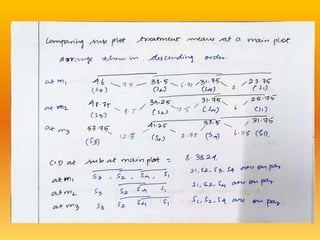 Comparing sub plot treatment means at a main plot
Arrange them in descending order.
at m1 46 7.5 38.5 6.75 31.75 8 23.75
(S3) (S2) (S4) (S1)
at m2 48.75 9.5 39.25 7.5 31.75 6 25.75
(S3) (S2) (S4) (S1)
at m3 53.75 12.5 41.25 2.75 38.5 6.75 31.75
(S3) (S2) (S4) (S1)
C.D at sub at main plot = 8.3824
at m1 S3 S2 S4 S1 S1, S2, S3, S4 are on par
at m2 S3 S2 S4 S1 S1, S2, S4 are on par
at m3 S3 S2 S4 S1 S1, S2, S4 are on par.